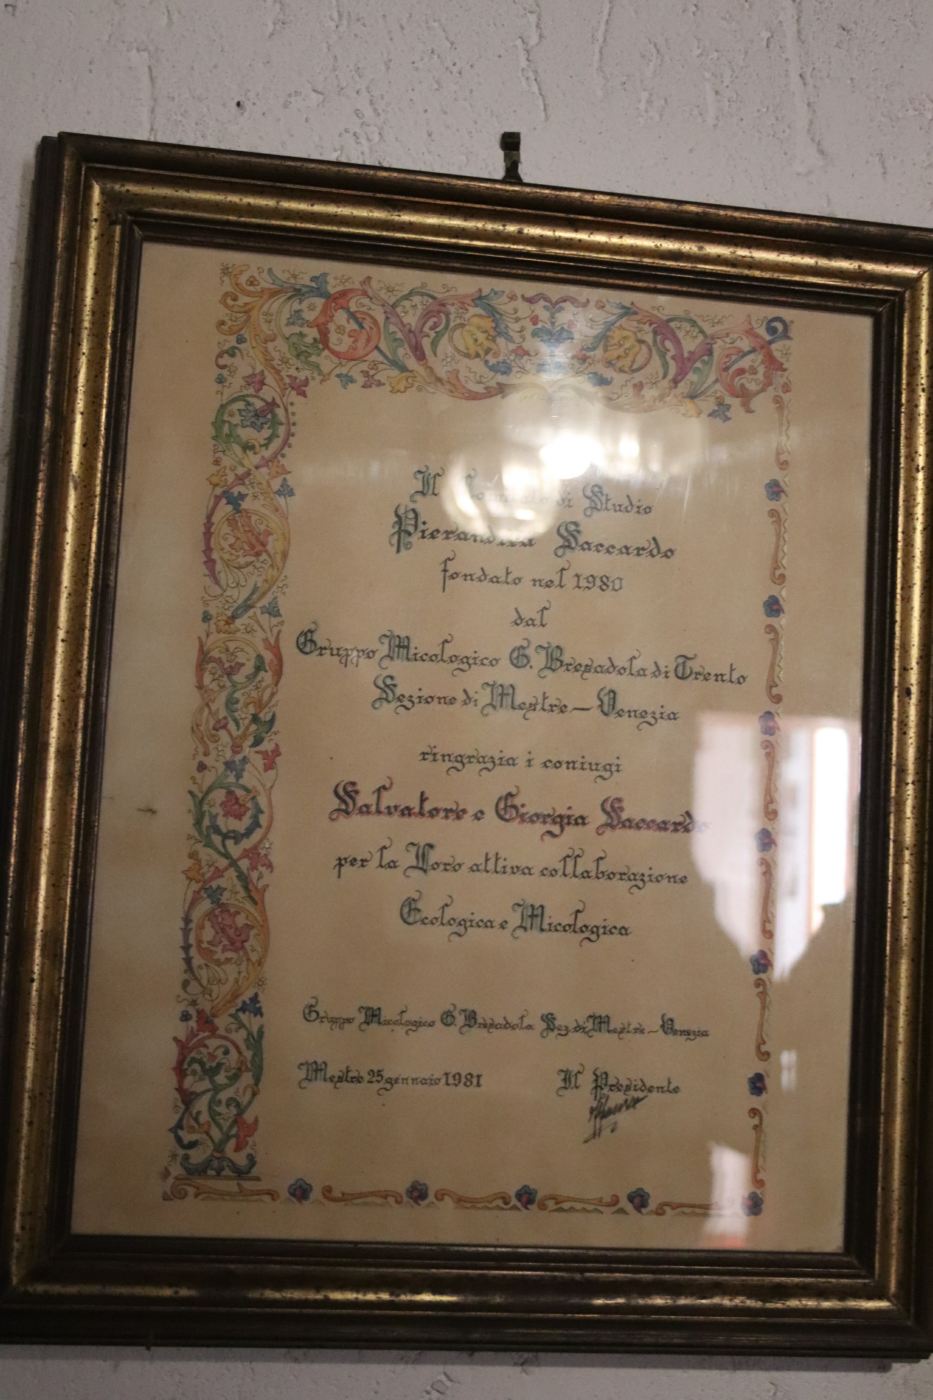 Il Comitato di Studio
Pierandrea Saccardo
fondato nel 1980
dal
Gruppo Micologico G. Bresadola di Trento
Sezione di Mestre - Venezia
ringrazia i coniugi
Salvatore e Giorgia Saccardo
per la Loro attiva collaborazione
Ecologica e Micologica
Gruppo Micologico G. Bresadola Sez. di Mestre - Venezia
Mestre 25 gennaio 1981
Il Presidente